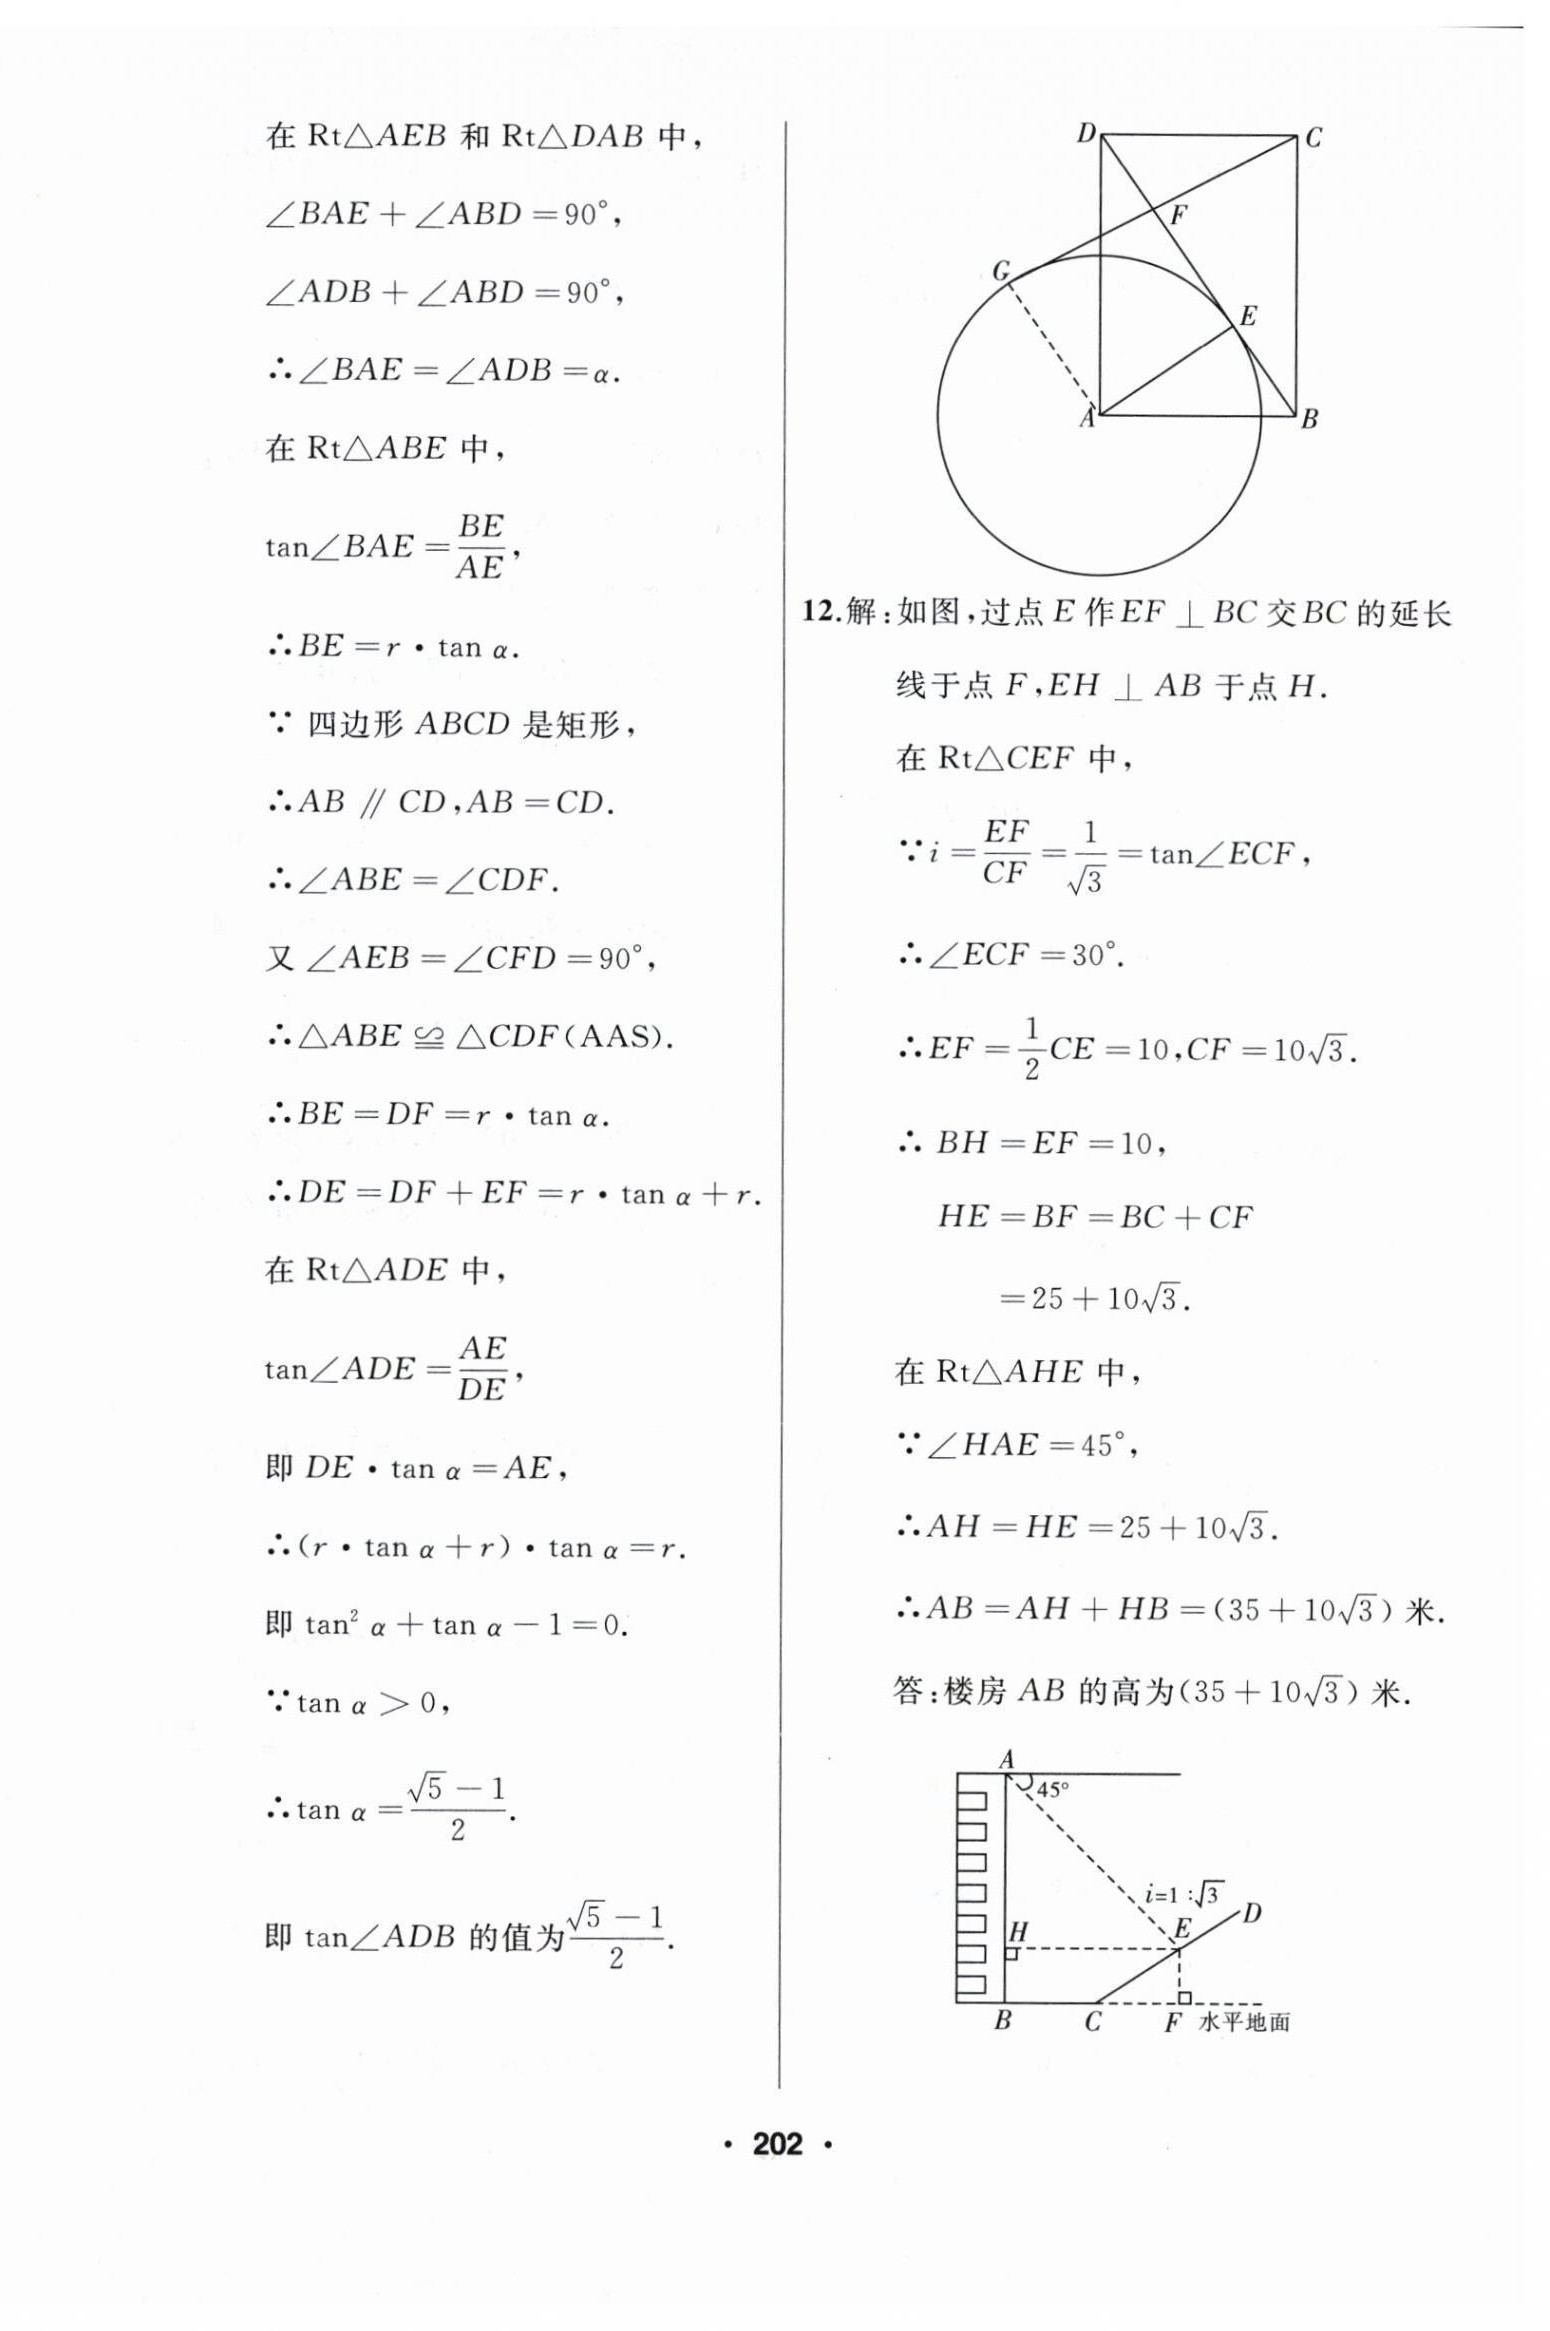 在 Rt△AEB 和 Rt△DAB 中，
∠BAE＋∠ABD＝90°，
∠ADB＋∠ABD＝90°，
∴∠BAE＝∠ADB＝α．
在 Rt△ABE 中，
tan∠BAE＝BE/AE，
∴BE＝r・tan α．
∵ 四边形 ABCD 是矩形，
∴AB ∥ CD，AB＝CD．
∴∠ABE＝∠CDF．
又 ∠AEB＝∠CFD＝90°，
∴△ABE ≌ △CDF（AAS）．
∴BE＝DF＝r・tan α．
∴DE＝DF＋EF＝r・tan α＋r．
在 Rt△ADE 中，
tan∠ADE＝AE/DE，
即 DE・tan α＝AE，
∴（r・tan α＋r）・tan α＝r．
即 tan² α＋tan α－1＝0．
∵tan α＞0，
∴tan α＝(√5－1)/2．
即 tan∠ADB 的值为(√5－1)/2．
D
C
F
G
E
A
B
12.解：如图，过点 E 作EF ⊥ BC 交BC 的延长
线于点 F，EH ⊥ AB 于点 H．
在 Rt△CEF 中，
∵i＝EF/CF＝1/√3＝tan∠ECF，
∴∠ECF＝30°．
∴EF＝1/2CE＝10，CF＝10√3．
∴ BH＝EF＝10，
HE＝BF＝BC＋CF
＝25＋10√3．
在 Rt△AHE 中，
∵∠HAE＝45°，
∴AH＝HE＝25＋10√3．
∴AB＝AH＋HB＝（35＋10√3）米．
答：楼房 AB 的高为（35＋10√3）米．
A
45°
i=1∶√3
D
H
E
B
C
F 水平地面
・202・